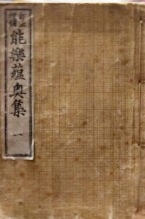 能樂蘊奧集
一